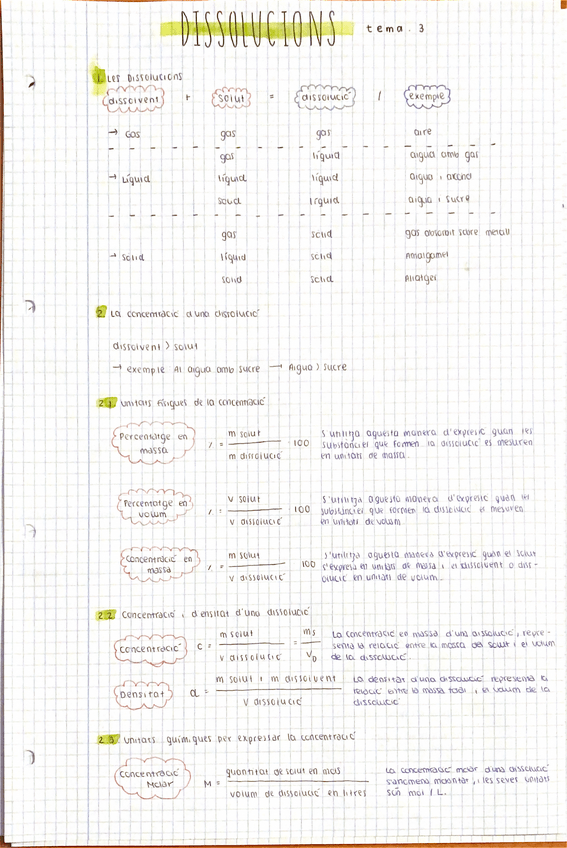 DISSOLUCIONS tema. 3
1. Les Dissolucions
dissolvent + solut = dissolució / exemple
→ Gas gas gas aire
gas líquid aigua amb gas
→ Líquid líquid líquid aigua i alcohol
sòlid líquid aigua i sucre
gas sòlid gas absorbit sobre metall
→ sòlid líquid sòlid Amalgames
sòlid sòlid Aliatges
2. La concentració d'una dissolució
dissolvent > solut
→ exemple Al aigua amb sucre → Aigua > sucre
2.1 Unitats físiques de la concentració
Percentatge en massa
% = m solut / m dissolució · 100
S'utilitza aquesta manera d'expresió quan les
substàncies que formen la dissolució es mesuren
en unitats de massa.
Percentatge en volum
% = v solut / v dissolució · 100
S'utilitza aquesta manera d'expresió quan les
substàncies que formen la dissolució es mesuren
en unitats de volum.
Concentració en massa
% = m solut / v dissolució 100
S'utilitza aquesta manera d'expresió quan el solut
s'expresa en unitats de massa i el dissolvent o diss-
olució en unitats de volum.
2.2 Concentració i densitat d'una dissolució
Concentració C = m solut / v dissolució = ms / VD
La concentració en massa d'una dissolució, repre-
senta la relació entre la massa del solut i el volum
de la dissolució.
Densitat d = m solut + m dissolvent / v dissolució
La densitat d'una dissolució representa la
relació entre la massa total i el volum de la
dissolució
2.3 Unitats químiques per expressar la concentració
Concentració Molar
M = quantitat de solut en mols / volum de dissolució en litres
La concentració molar d'una dissolució
molaritat, i les seves unitats
són mol / L.